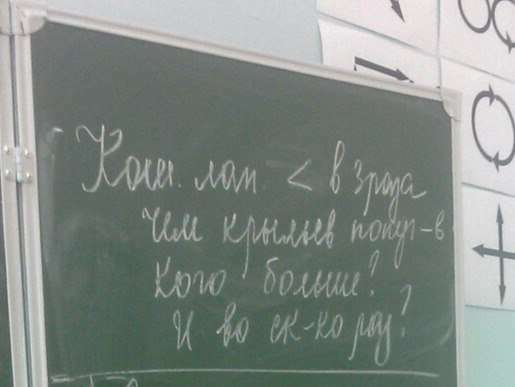 Кош. лап. < в 3 раза
Чем крыльев попуг-в
Кого больше?
И во ск-ко раз?